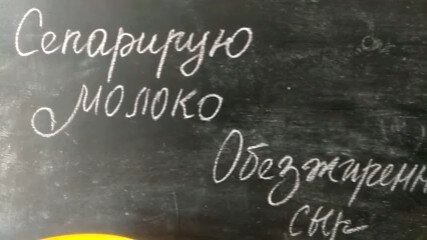 Сепарирую
молоко
Обезжиренн
сыр